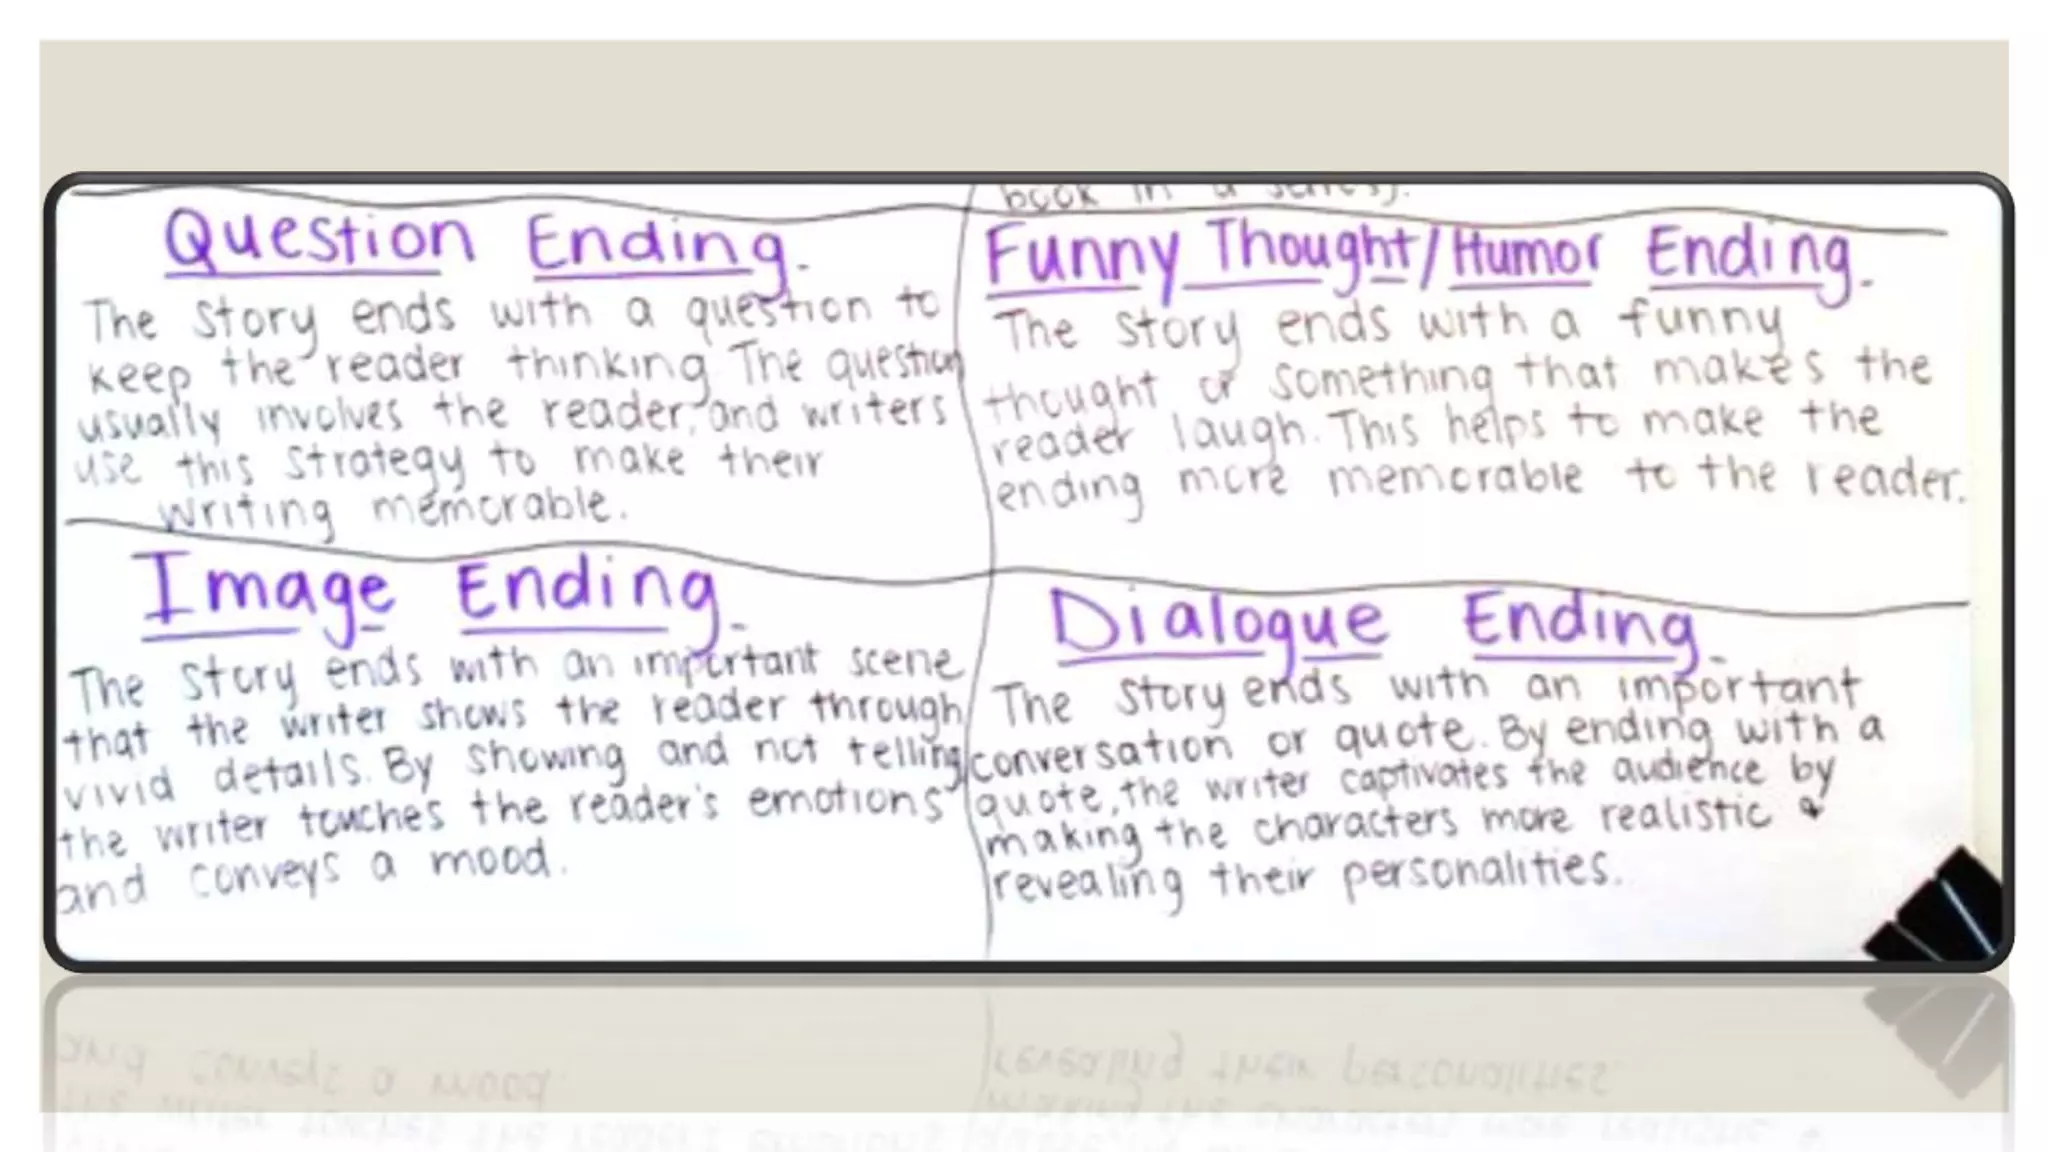 book in a series).
Question Ending.
The story ends with a question to
keep the reader thinking. The question
usually involves the reader, and writers
use this strategy to make their
writing memorable.
Funny Thought/Humor Ending.
The story ends with a funny
thought or something that makes the
reader laugh. This helps to make the
ending more memorable to the reader.
Image Ending.
The story ends with an important scene
that the writer shows the reader through
vivid details. By showing and not telling,
the writer touches the reader's emotions
and conveys a mood.
Dialogue Ending.
The story ends with an important
conversation or quote. By ending with a
quote, the writer captivates the audience by
making the characters more realistic &
revealing their personalities.